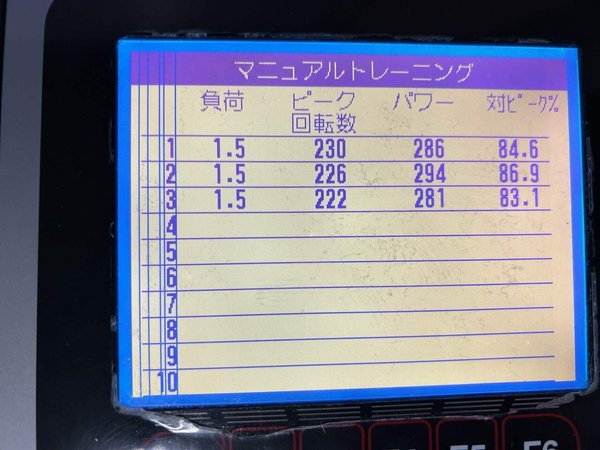 マニュアルトレーニング
負荷 ピーク回転数 パワー 対ピーク%
1 1.5 230 286 84.6
2 1.5 226 294 86.9
3 1.5 222 281 83.1
4
5
6
7
8
9
10
F5 F6